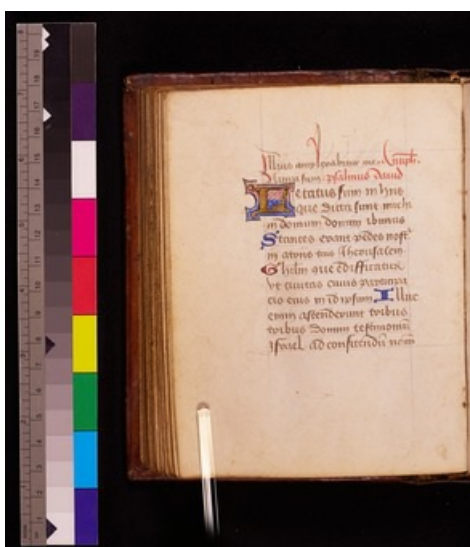 Illius amplexabitur me. Antiph.
Nigra sum. psalmus dauid
Letatus sum in hiis
que dicta sunt michi
in domum domini ibimus
Stantes erant pedes nost
in atriis tuis Iherusalem
que edificatur
vt ciuitas cuius participa
cio eius in id ipsum Illuc
enim ascenderunt tribus
tribus domini testimoniu
Israel ad confitendu nom